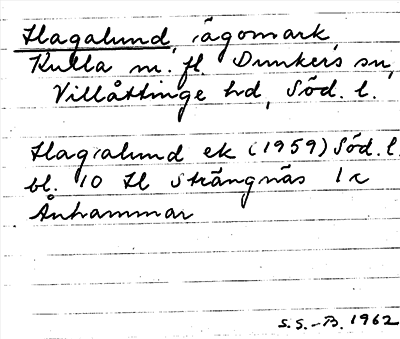 Hagalund, ägomark,
Kulla m. fl. Dunkers sn,
Villåttinge hd, Söd. l.
Hagalund ek (1959) Söd. l.
bl. 10 H Strängnäs 1 c
Ånhammar
S.S.-B. 1962